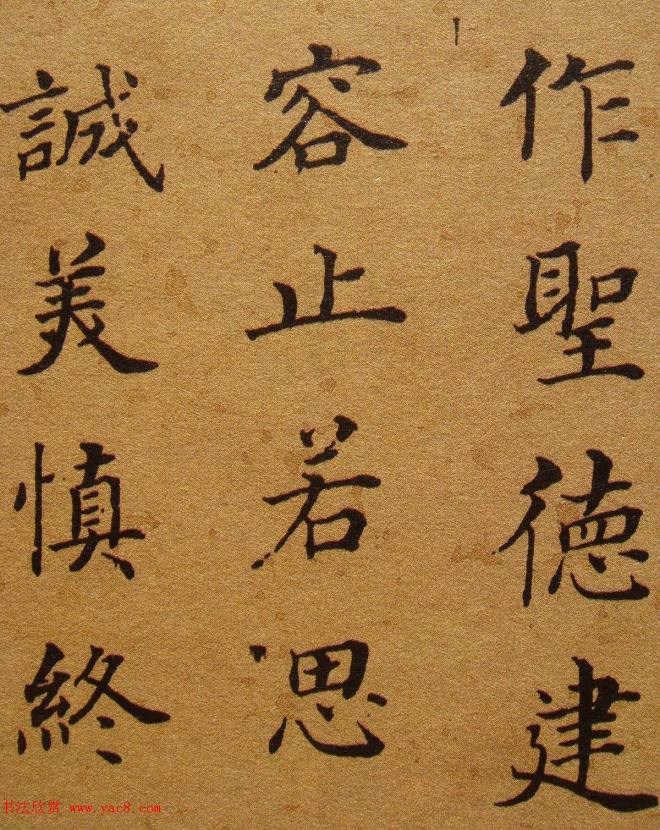 作聖德建
容止若思
誠美慎終
书法欣赏 www.yac8.com